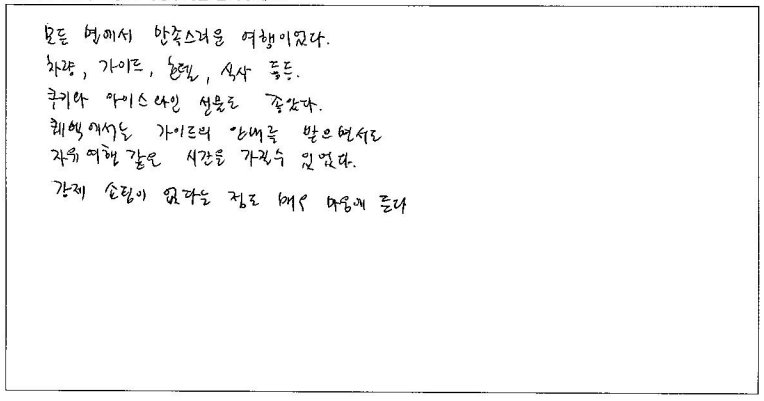 모든 면에서 만족스러운 여행이었다.
차량, 가이드, 호텔, 식사 등등.
쿠키와 아이스와인 선물도 좋았다.
퀘벡에서는 가이드의 안내를 받으면서도
자유여행 같은 시간을 가질수 있었다.
강제 쇼핑이 없다는 점도 매우 마음에 든다